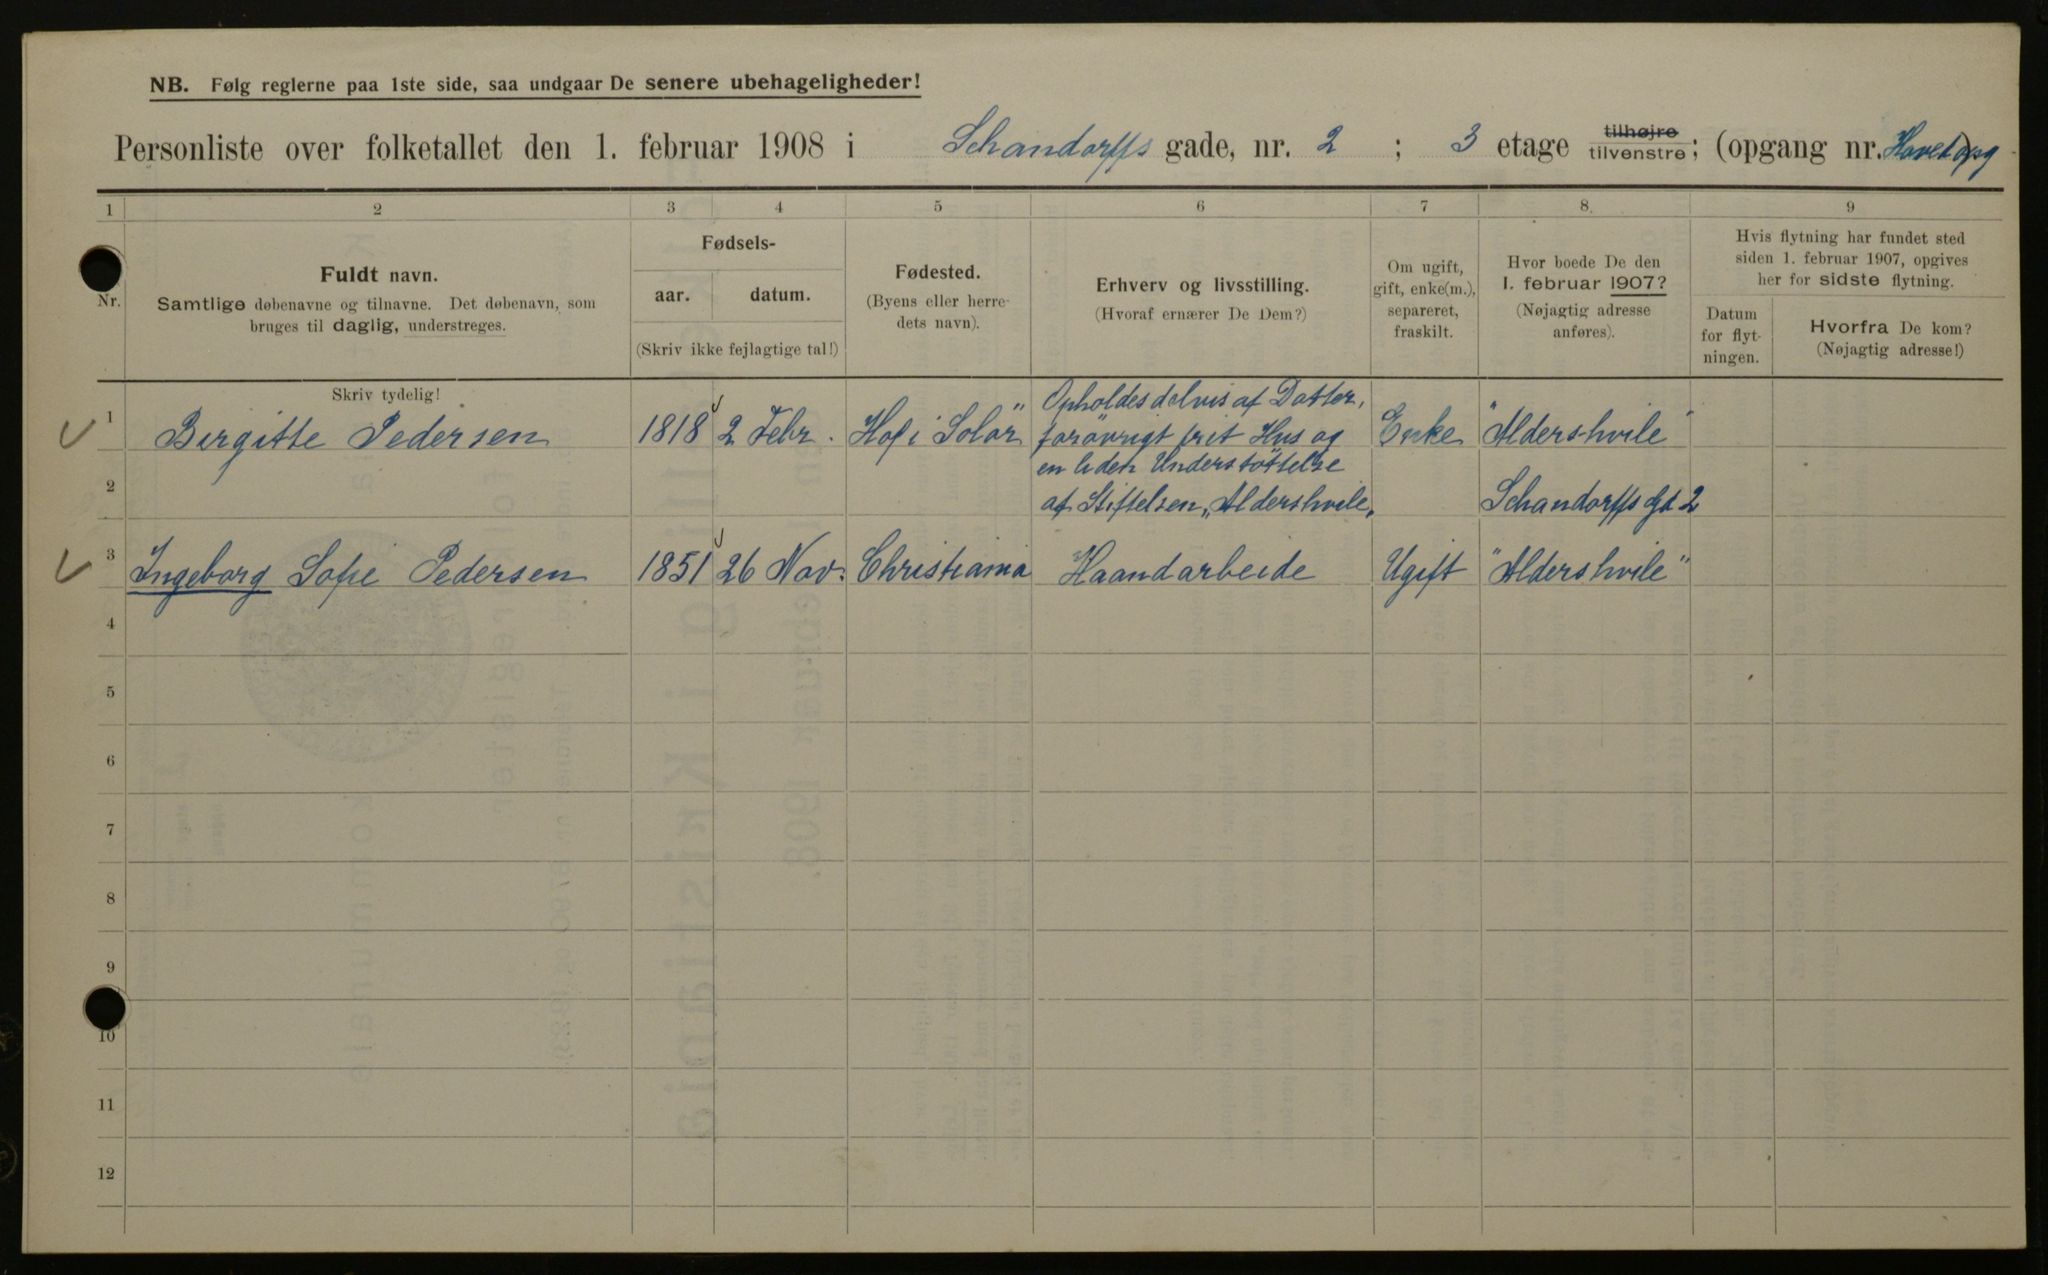 NB. Følg reglerne paa 1ste side, saa undgaar De senere ubehageligheder!
Personliste over folketallet den 1. februar 1908 i Schandorffs gade, nr. 2 ; 3 etage tilhøjre tilvenstre; (opgang nr. Hovedopg)
1 2 3 4 5 6 7 8. 9
Nr.
Fuldt navn.
Samtlige døbenavne og tilnavne. Det døbenavn, som
bruges til daglig, understreges.
Fødsels-
aar. datum.
(Skriv ikke fejlagtige tal!)
Fødested.
(Byens eller herre-
dets navn).
Erhverv og livsstilling.
(Hvoraf ernærer De Dem?)
Om ugift,
gift, enke(m.),
separeret,
fraskilt.
Hvor boede De den
1. februar 1907?
(Nøjagtig adresse
anføres).
Hvis flytning har fundet sted
siden 1. februar 1907, opgives
her for sidste flytning.
Datum
for flyt-
ningen.
Hvorfra De kom?
(Nøjagtig adresse!)
Skriv tydelig!
1 Birgitte Pedersen 1818 2 Febr. Hof i Solør Opholdes delvis af Datter, Enke "Aldershvile"
forøvrigt frit Hus og
en liden Understøttelse
2 af Stiftelsen „Aldershvile„ Schandorffs Gd 2
3 Ingeborg Sofie Pedersen 1851 26 Nov. Christiania Haandarbeide Ugift "Aldershvile"
4
5
6
7
8
9
10
11
12